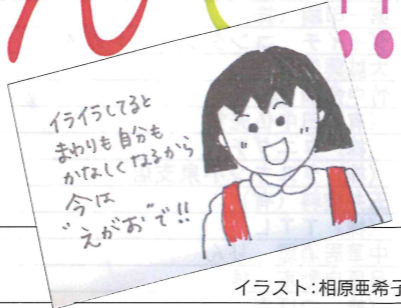 イライラしてると
まわりも自分も
かなしくなるから
今は
“えがお”で!!
イラスト:相原亜希子